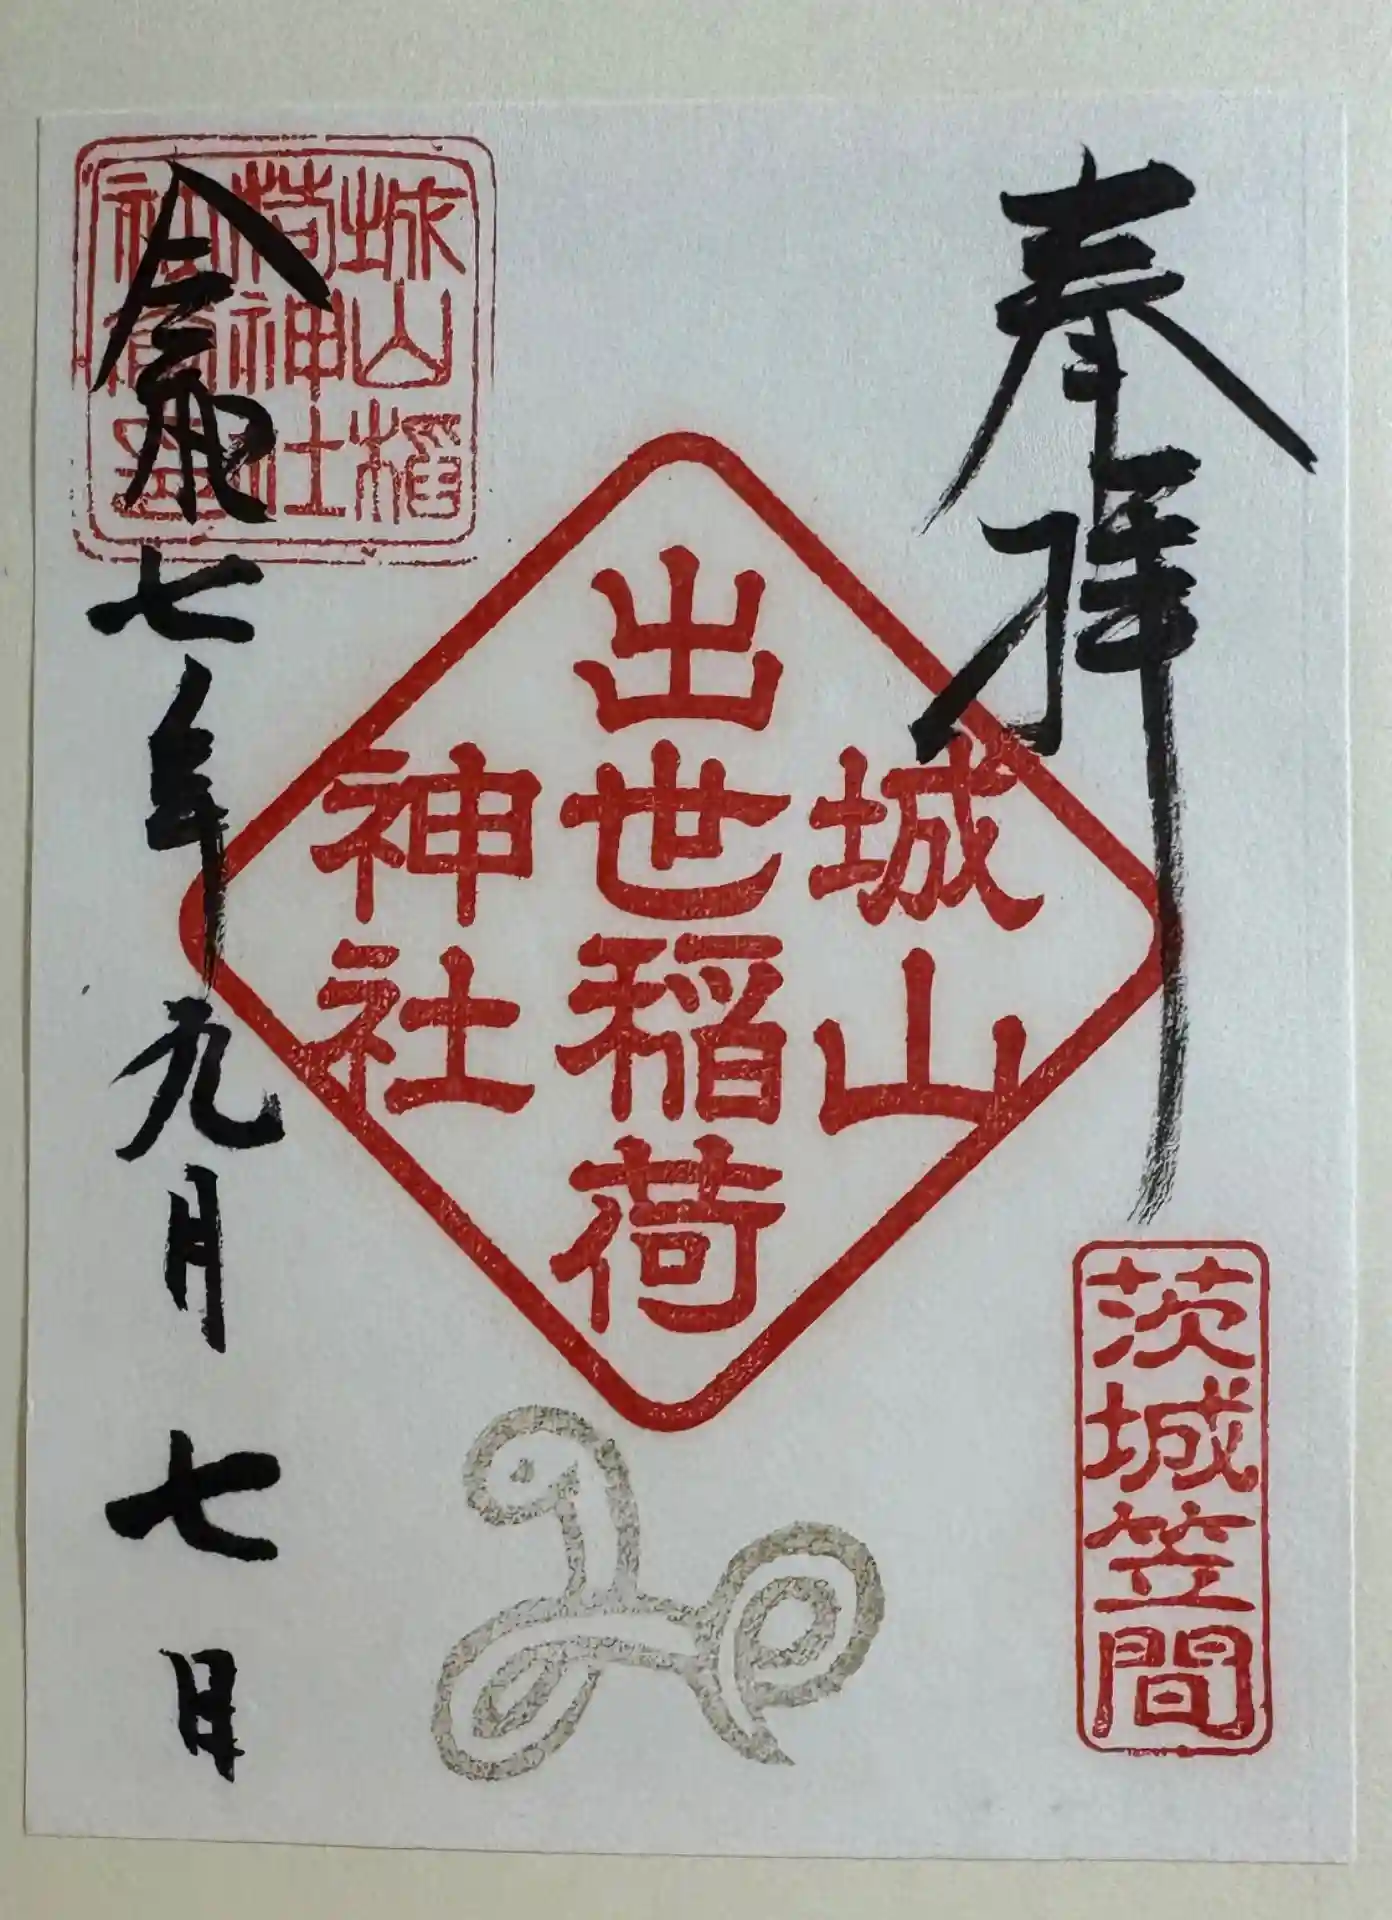 奉拝
茨城笠間
城山
出世稲荷
神社
城山稲
荷神社
令和七年九月七日